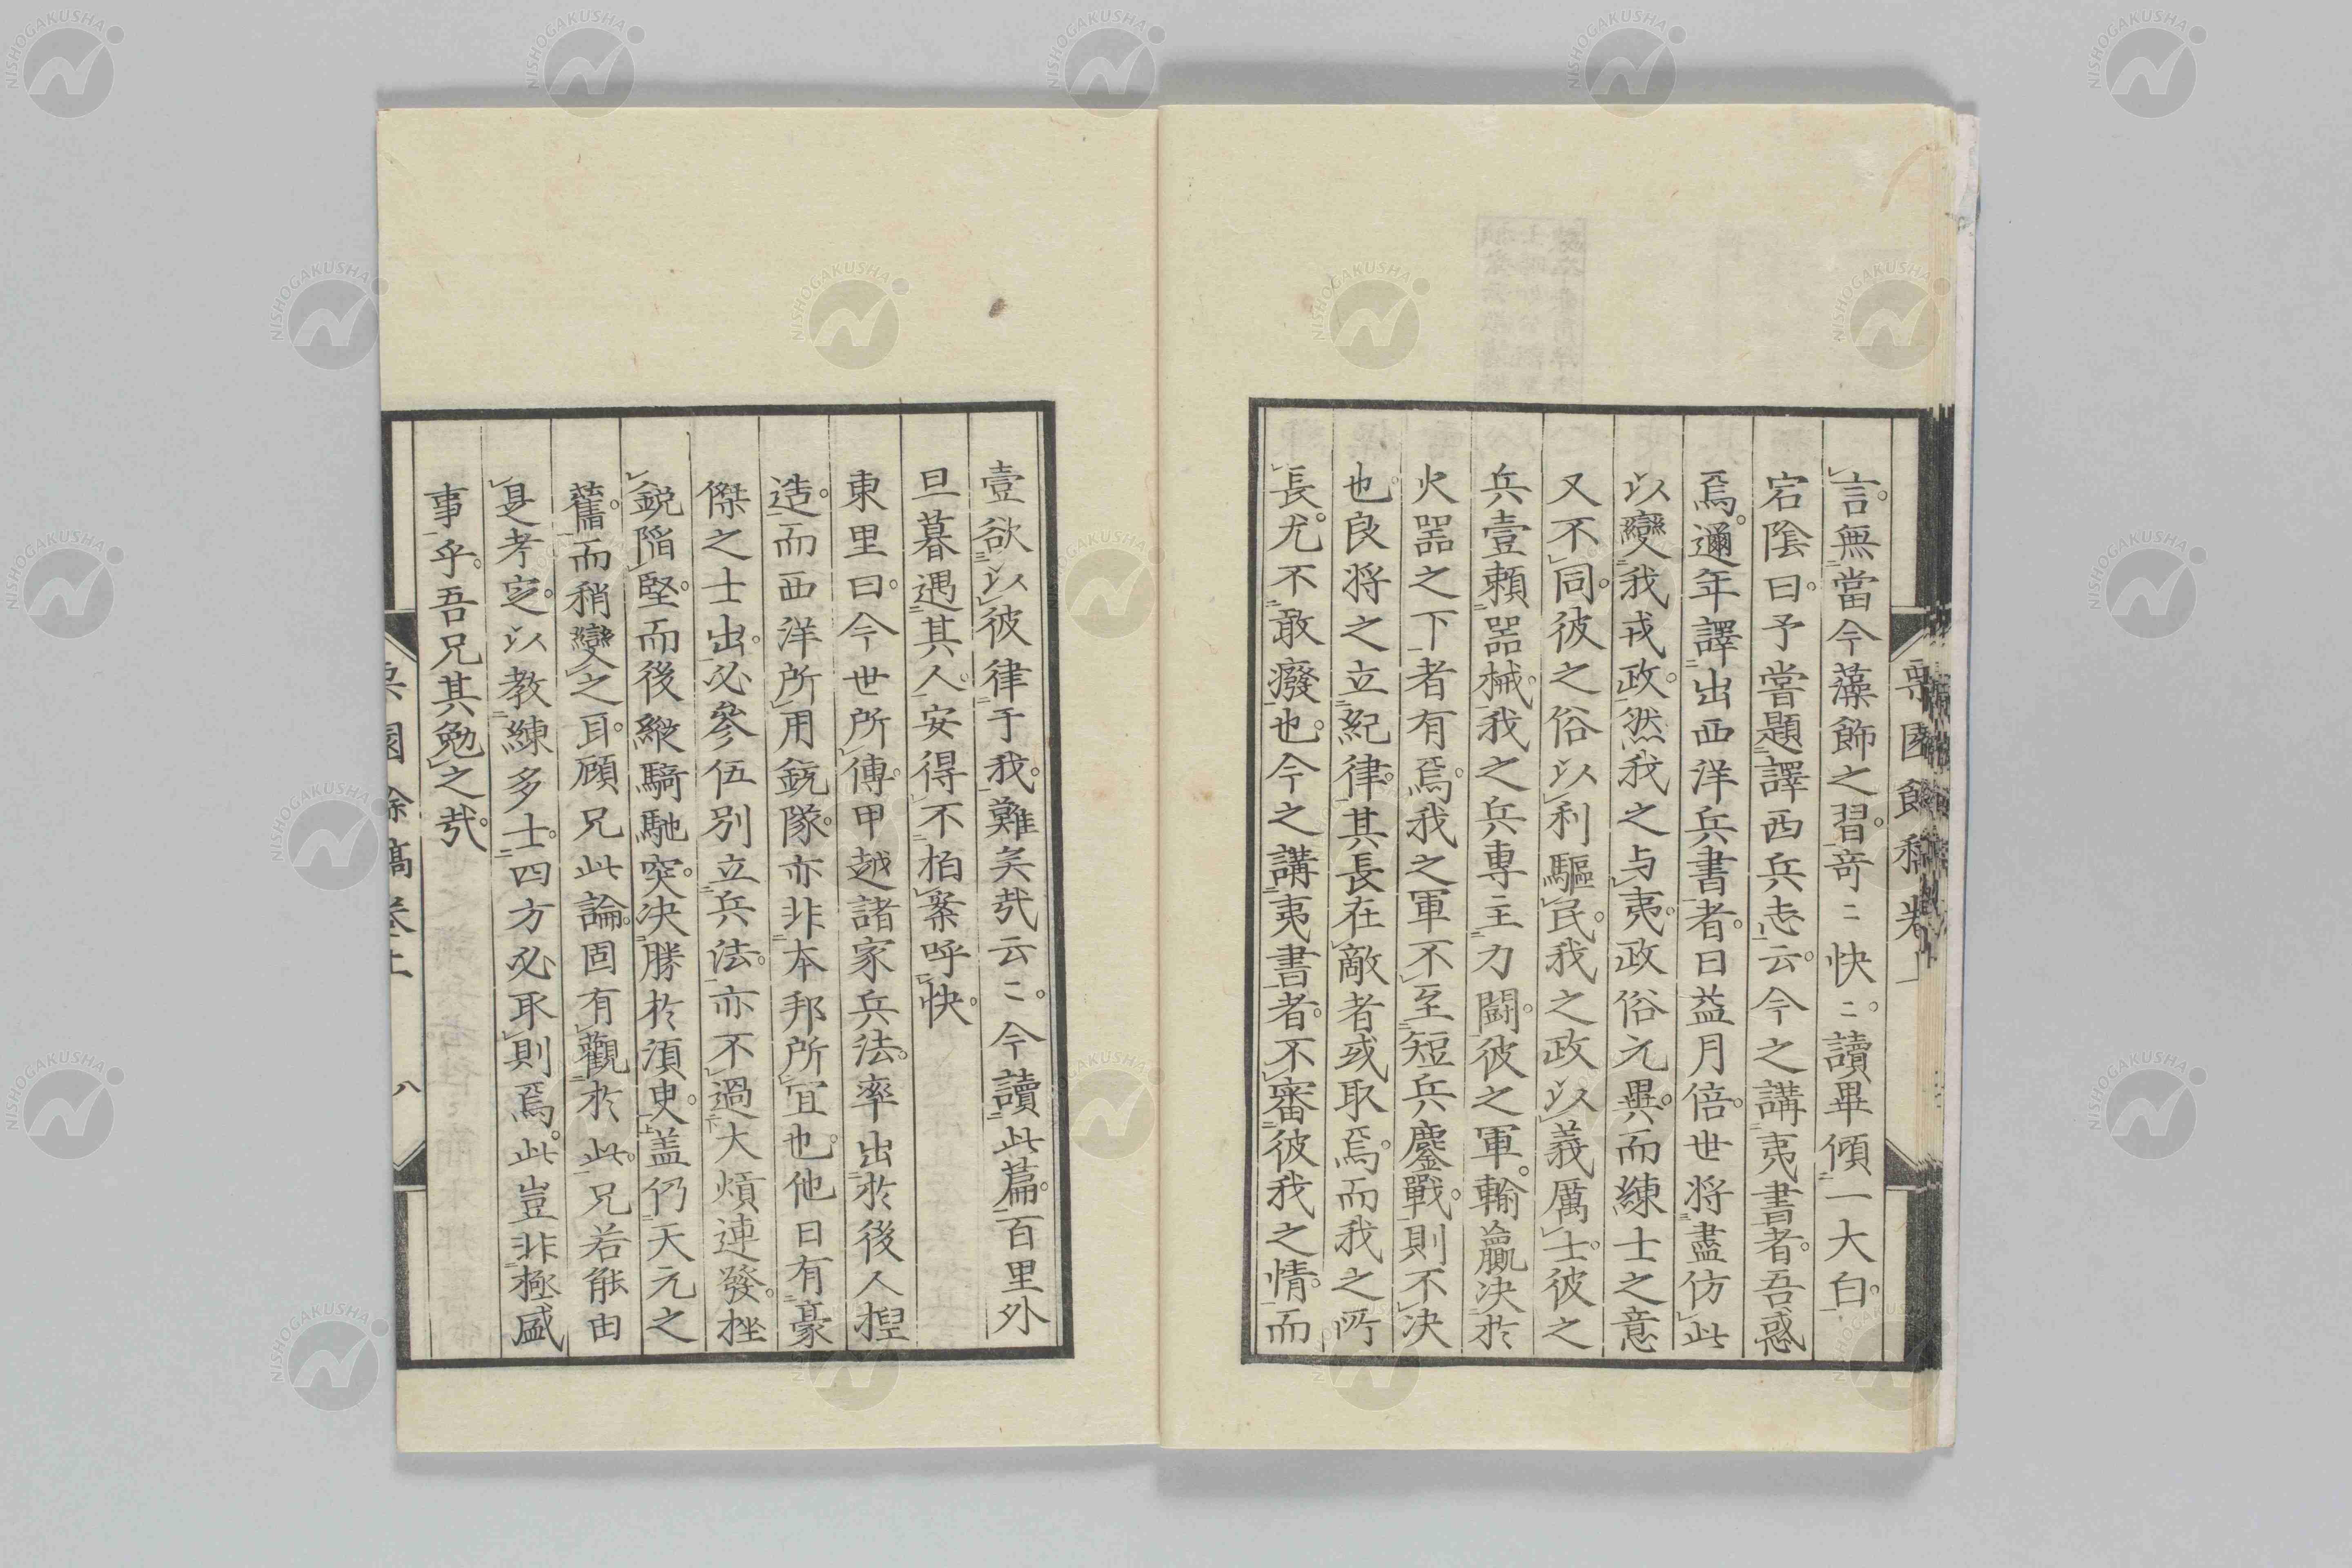 言。無當今藻飾之習。奇〻快〻。讀畢傾一大白。
宕陰曰。予嘗題譯西兵志云。今之講夷書者。吾惑
焉。邇年譯出西洋兵書者。日益月倍。世将盡仿此
以變我戎政。然我之与夷。政俗元異。而練士之意
又不同。彼之俗以利驅民。我之政以義厲士。彼之
兵壹賴噐械。我之兵專主力闘。彼之軍。輸贏决於
火噐之下者有焉。我之軍不至短兵鏖戰。則不决
也。良将之立紀律。其長在敵者或取焉。而我之所
長。尤不敢癈也。今之講夷書者。不審彼我之情。而
壹欲以彼律于我。難矣㢤云〻。今讀此篇。百里外
旦暮遇其人。安得不拍案呼快。
東里曰。今世所傳。甲越諸家兵法。率出於後人揑
造。而西洋所用銃隊。亦非本邦所宜也。他日有豪
傑之士出。必參伍別立兵法。亦不過大熕連發。挫
鋭陷堅。而後縱騎馳突。决勝於湏臾。盖仍天元之
舊。而稍變之耳。顧兄此論。固有觀於此。兄若能由
是考定。以教練多士。四方必取則焉。此豈非極盛
事乎。吾兄其勉之㢤。
栗園餘稿卷上
八
NISHOGAKUSHA